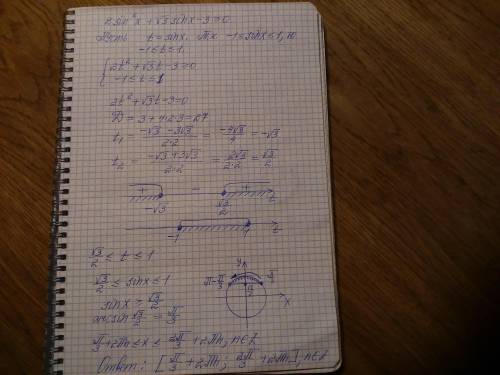 2sin²x + √3 sinx - 3 ≥ 0
Пусть t = sinx. Т.к. -1 ≤ sinx ≤ 1, то
-1 ≤ t ≤ 1.
{ 2t² + √3t - 3 ≥ 0
-1 ≤ t ≤ 1
2t² + √3t - 3 = 0
D = 3 + 4·2·3 = 27
t₁ = (-√3 - 3√3)/(2·2) = -4√3/4 = -√3
t₂ = (-√3 + 3√3)/(2·2) = 2√3/(2·2) = √3/2
+ - +
-√3 √3/2 t
-1 1 t
√3/2 ≤ t ≤ 1
√3/2 ≤ sinx ≤ 1
y
π - π/3 π/3
√3/2
x
sinx ≥ √3/2
arcsin √3/2 = π/3
π/3 + 2πn ≤ x ≤ 2π/3 + 2πn, n∈Z
Ответ: [π/3 + 2πn; 2π/3 + 2πn], n∈Z